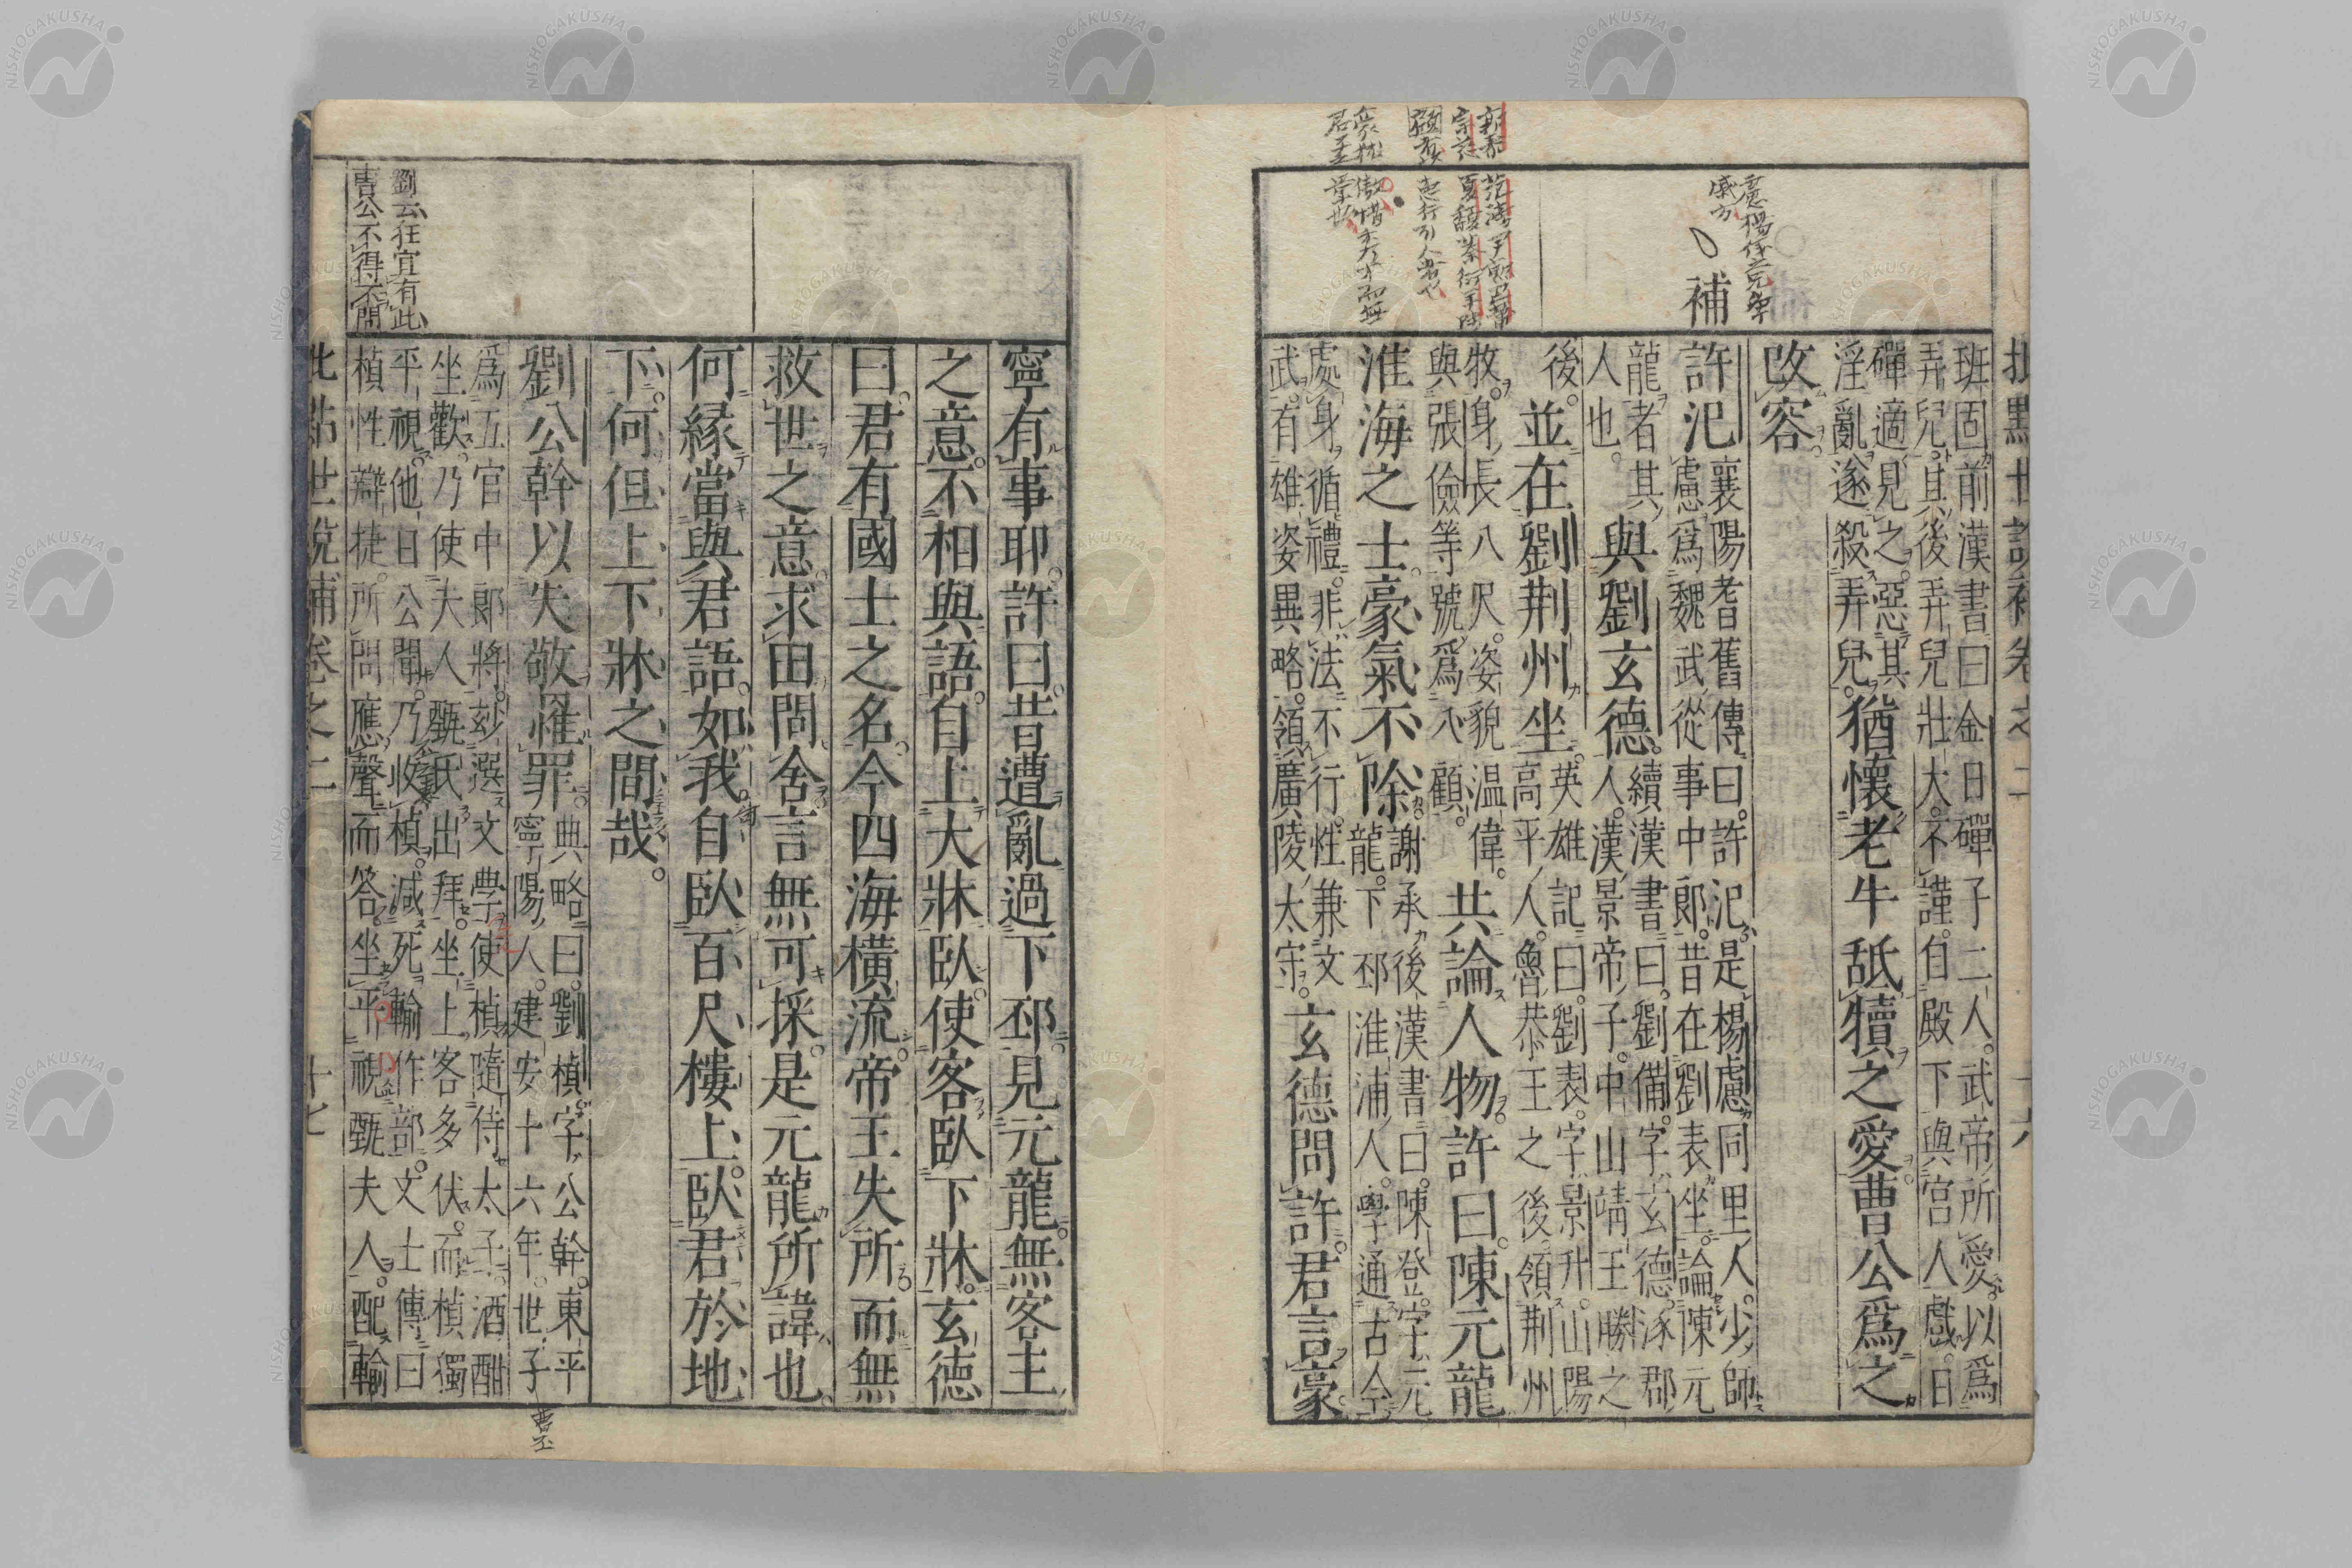 批點世說補卷之二 十六
班固前漢書曰金日磾子二人武帝所愛以爲
弄兒其後弄兒壯大不謹自殿下與宮人戲日
磾適見之惡其
淫亂遂殺弄兒
猶懷老牛舐犢之愛曹公爲之
改容
補
許汜
襄陽耆舊傳曰許汜是楊慮同里人少師
慮爲魏武從事中郎昔在劉表坐論陳元
龍者其
人也
與劉玄德
續漢書曰劉備字玄德涿郡
人漢景帝子中山靖王勝之
後
並在劉荆州坐
英雄記曰劉表字景升山陽
高平人魯恭王之後領荆州
牧身長八尺姿貌温偉
與張儉等號爲八顧
共論人物許曰陳元龍
淮海之士豪氣不除
謝承後漢書曰陳登字元
龍下邳淮浦人學通古今
處身循禮非法不行性兼文
武有雄姿異略領廣陵太守
玄德問許君言豪
寧有事耶許曰昔遭亂過下邳見元龍無客主
之意不相與語自上大牀臥使客臥下牀玄德
曰君有國士之名今四海橫流帝王失所而無
救世之意求田問舍言無可採是元龍所諱也
何緣當與君語如我自臥百尺樓上臥君於地
下何但上下牀之間哉
劉公幹以失敬罹罪
典略曰劉楨字公幹東平
寧陽人建安十六年世子
爲五官中郎將妙選文學使楨隨侍太子酒酣
坐歡乃使夫人甄氏出拜坐上客多伏而楨獨
平視他日公聞乃收楨減死輸作部文士傳曰
楨性辯捷所問應聲而答坐平視甄夫人配輸
劉云狂宜有此
曹公不得不問
曹丕
批點世說補卷之二 十七